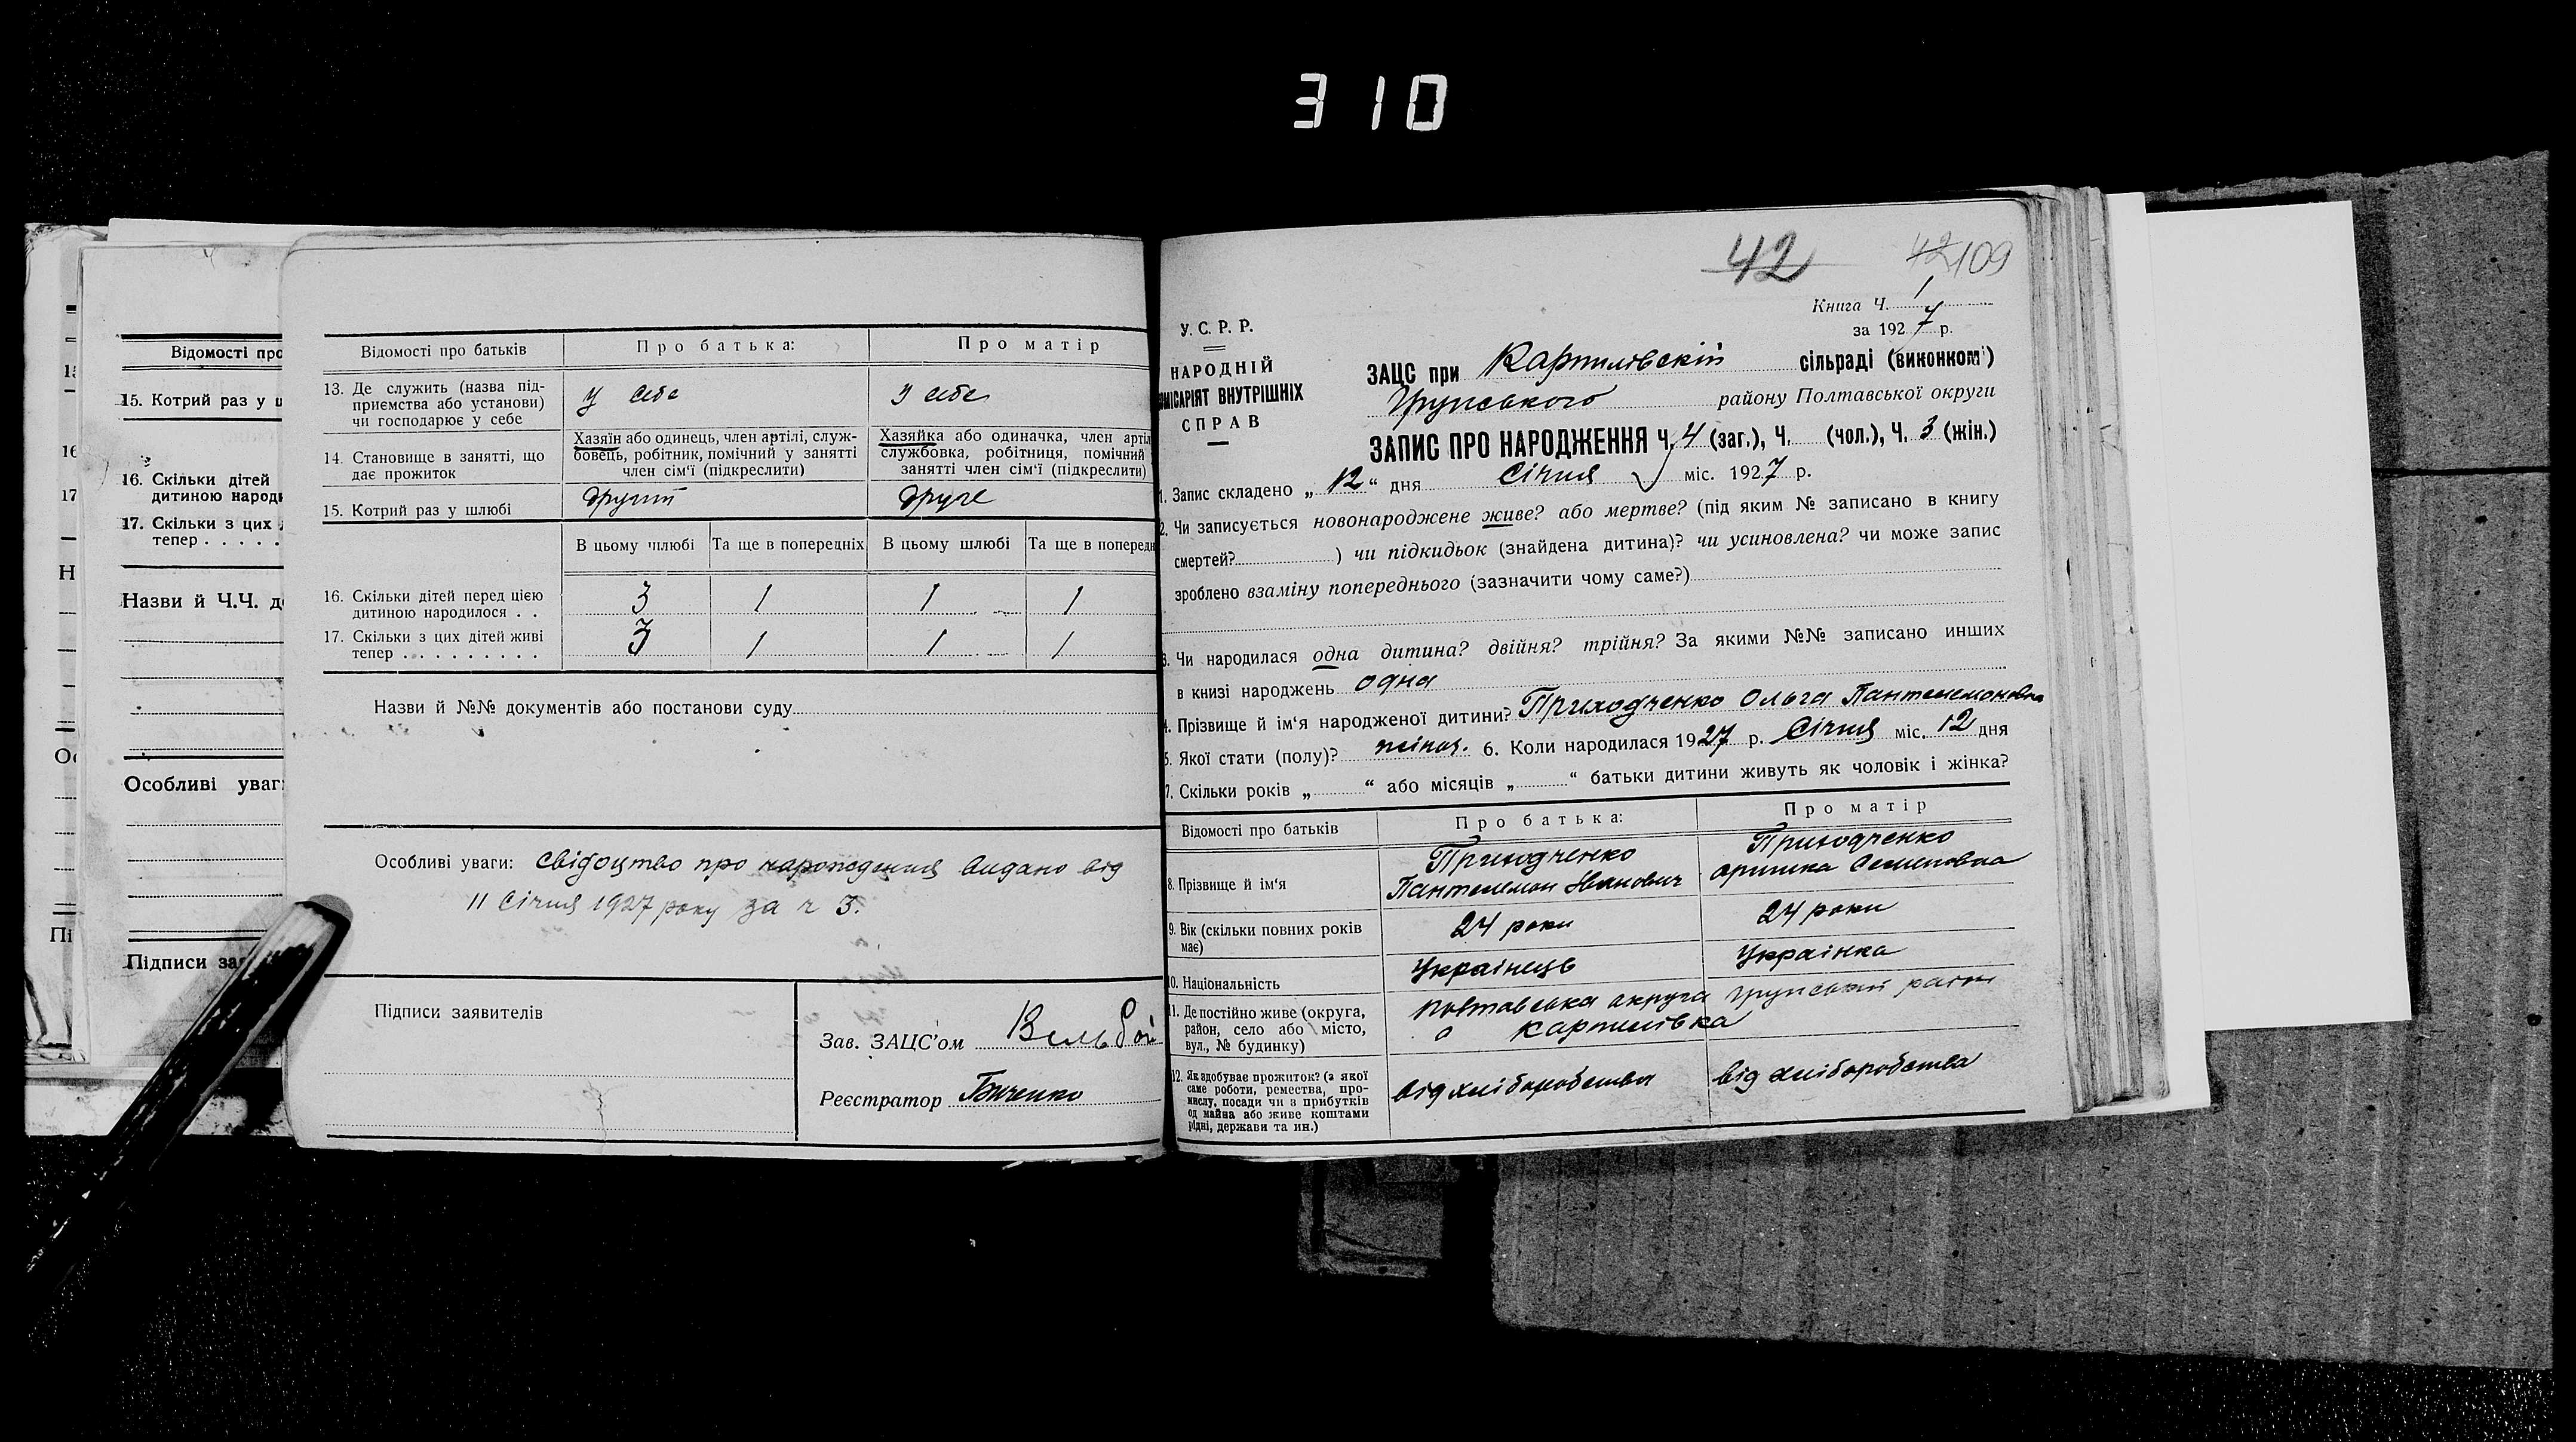 310
Відомості про
15. Котрий раз у ш
16. Скільки дітей
дитиною народ
17. Скільки з цих
тепер . . . . .
Назви й Ч.Ч. д
Особливі уваг
Підписи зая
Відомості про батьків
Про батька:
Про матір
13. Де служить (назва під-
приємства або установи)
чи господарює у себе
у себе
у себе
14. Становище в занятті, що
дає прожиток
Хазяїн або одинець, член артілі, служ-
бовець, робітник, помічний у занятті
член сім'ї (підкреслити)
Хазяйка або одиначка, член артіл
службовка, робітниця, помічний
занятті член сім'ї (підкреслити)
15. Котрий раз у шлюбі
другий
друге
В цьому шлюбі
Та ще в попередніх
В цьому шлюбі
Та ще в поперед
16. Скільки дітей перед цією
дитиною народилося . .
3 1 1 1
17. Скільки з цих дітей живі
тепер . . . . . . . . .
3 1 1 1
Назви й №№ документів або постанови суду
Особливі уваги: Свідоцтво про народження видано від
11 Січня 1927 року за ч 3.
Підписи заявителів
Зав. ЗАЦС'ом
Реєстратор Біченко
42
42 109
Книга Ч. 1
за 1927 р.
У. С. Р. Р.
НАРОДНІЙ
ОМІСАРІЯТ ВНУТРІШНІХ
СПРАВ
ЗАЦС при Карпилівскій сільраді (виконком')
Грунського району Полтавської округи
ЗАПИС ПРО НАРОДЖЕННЯ Ч. 4 (заг.), Ч. (чол.), Ч. 3 (жін.)
1. Запис складено „ 12 " дня Січня міс. 1927 р.
2. Чи записується новонароджене живе? або мертве? (під яким № записано в книгу
смертей?) чи підкидьок (знайдена дитина)? чи усиновлена? чи може запис
зроблено взаміну попереднього (зазначити чому саме?)
3. Чи народилася одна дитина? двійня? трійня? За якими №№ записано инших
в книзі народжень одна
4. Прізвище й ім'я народженої дитини? Приходченко Ольга Пантелемоновна
5. Якої стати (полу)? жіноч. 6. Коли народилася 1927 р. Січня міс. 12 дня
7. Скільки років „ " або місяців „ " батьки дитини живуть як чоловік і жінка?
Відомості про батьків
Про батька:
Про матір
8. Прізвище й ім'я
Приходченко
Пантелемон Іванович
Приходченко
Аришка Семеновна
9. Вік (скільки повних років
має)
24 роки
24 роки
10. Національність
Українець
Українка
11. Де постійно живе (округа,
район, село або місто,
вул., № будинку)
Полтавська округа Грунський район
с Карпилівка
12. Як здобуває прожиток? (з якої
саме роботи, ремества, про-
мислу, посади чи з прибутків
од майна або живе коштами
рідні, держави та ин.)
від хліборобства
від хліборобства